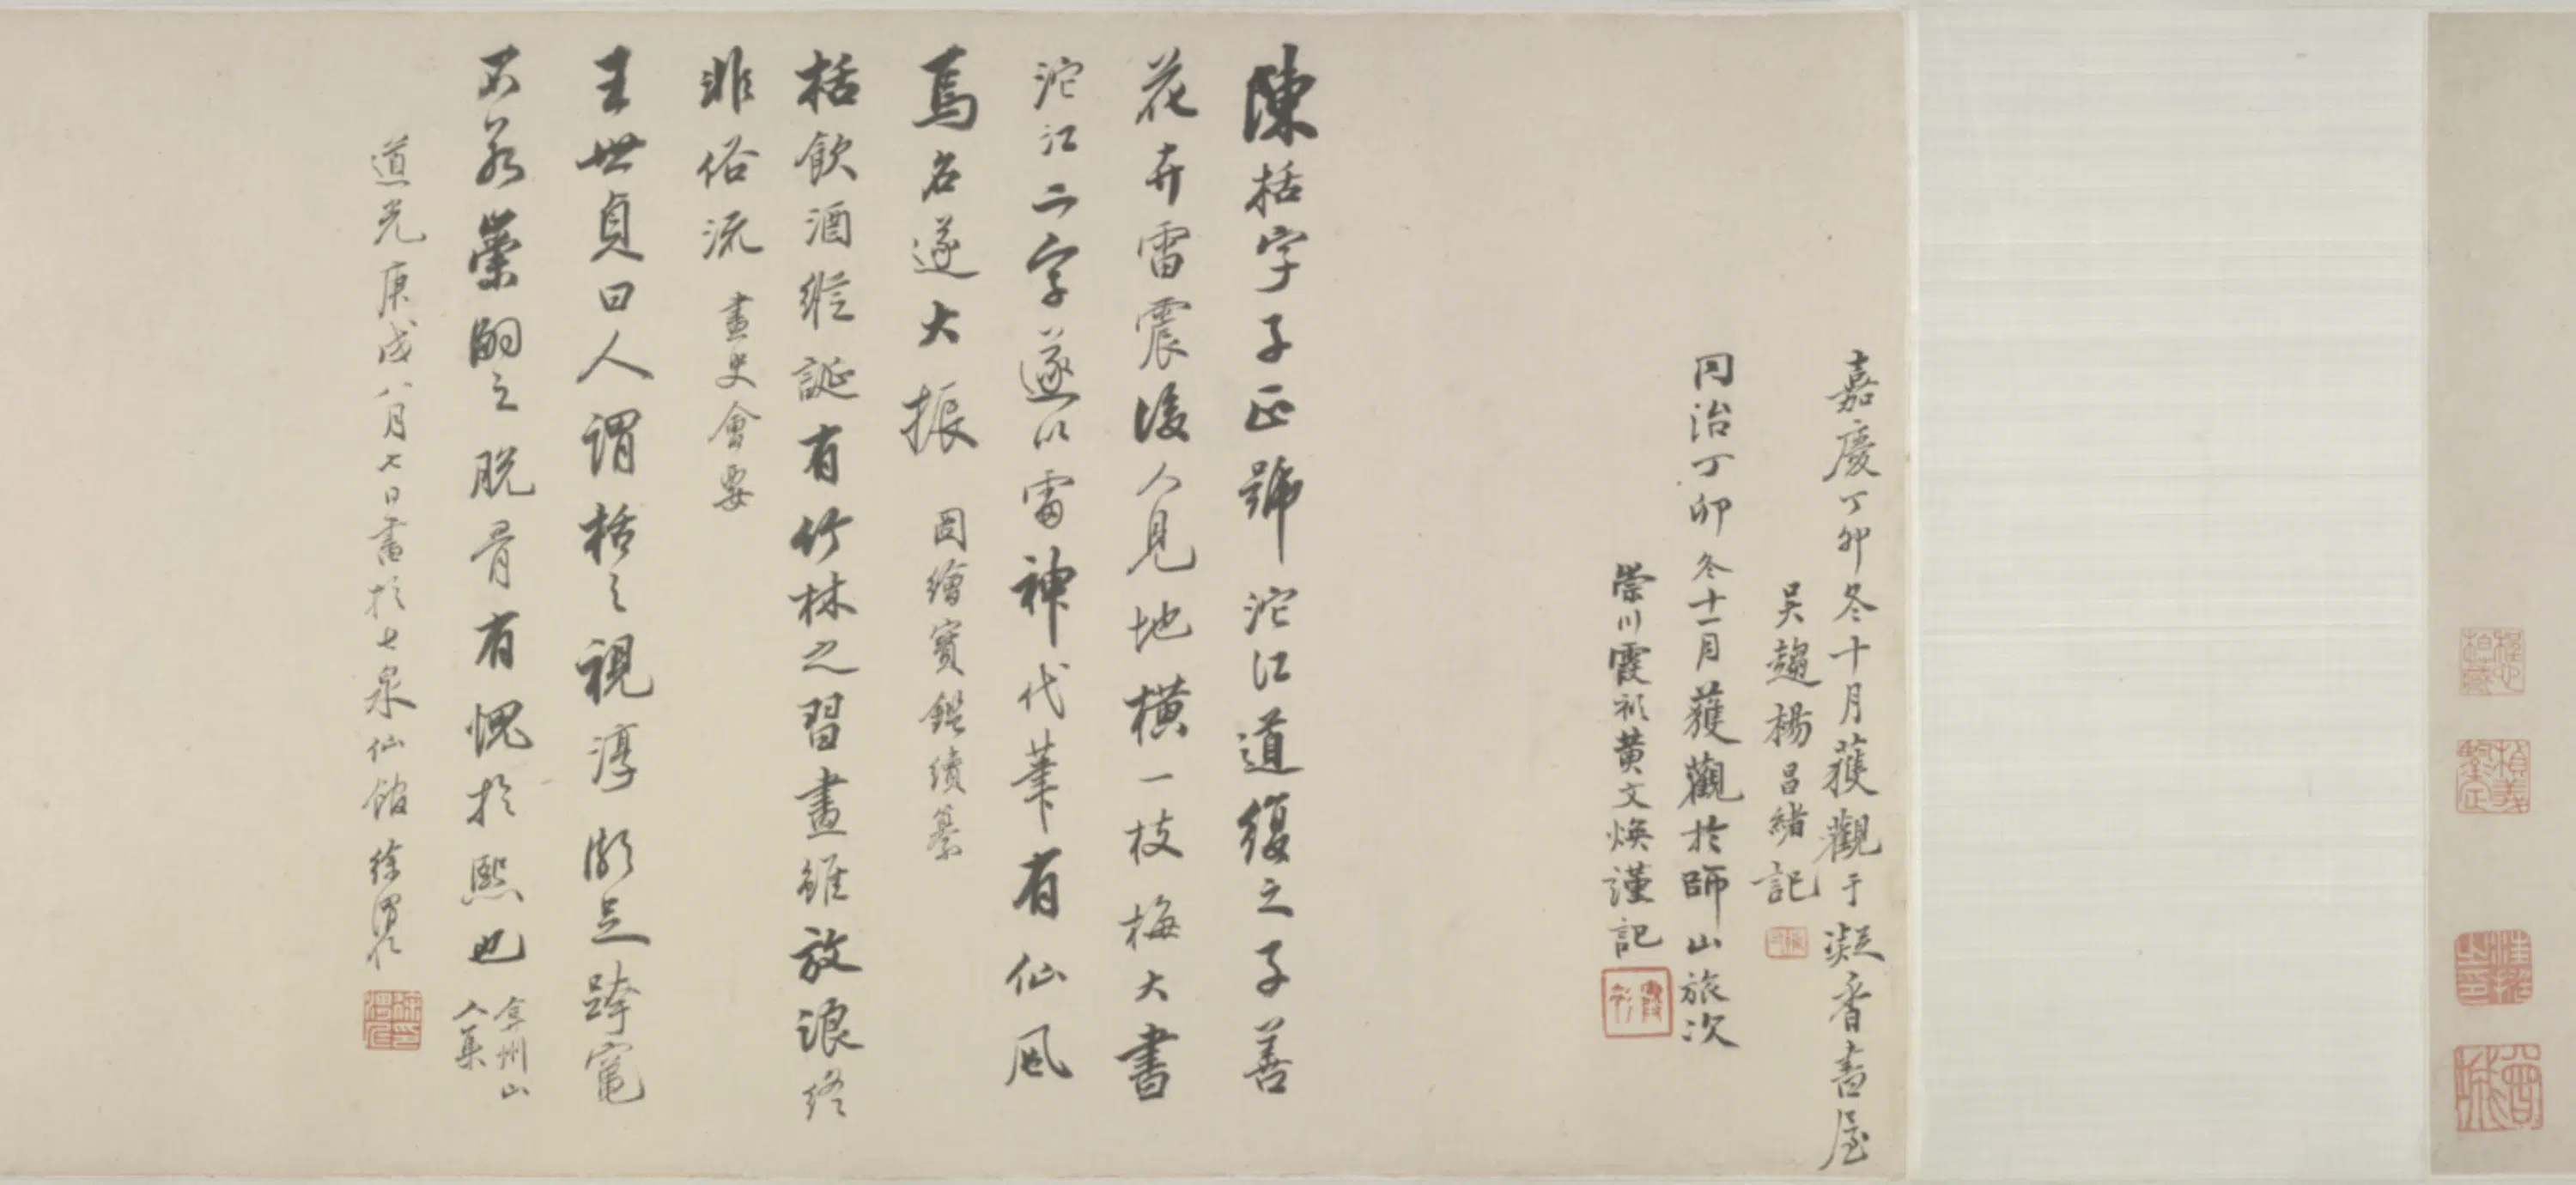 嘉慶丁卯冬十月獲觀于凝香書屋
吴趨楊昌緒記
同治丁卯冬十一月獲觀於師山旅次
崇川霞衫黄文焕謹記
霞衫
陳栝字子正號沱江道復之子善
花卉雷震後人見地橫一枝梅大書
沱江二字遂以雷神代筆有仙風
焉名遂大振 圖繪寶鑑續纂
栝飲酒縱誕有竹林之習畫雖放浪終
非俗流 畫史會要
王世貞曰人謂栝之視淳頗足跨竈
不若崇嗣之脱骨有愧於熙也 弇州山人集
道光庚戌八月七日書於七泉仙館徐渭仁